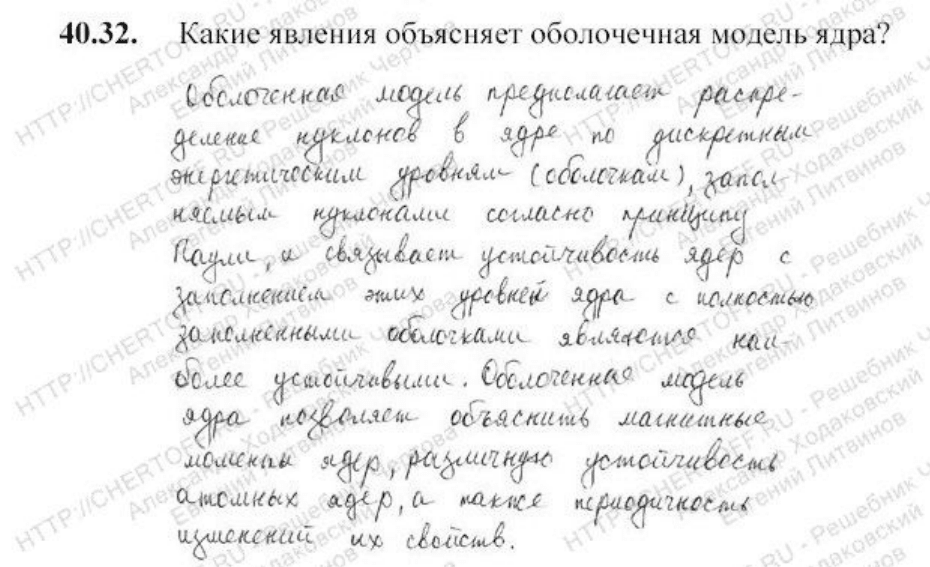 40.32. Какие явления объясняет оболочечная модель ядра?
Оболоченная модель предполагает распре-
деление нуклонов в ядре по дискретным
энергетическим уровням (оболочкам), запол-
няемым нуклонами согласно принципу
Паули, и связывает устойчивость ядер с
заполнением этих уровней ядра с полностью
заполненными оболочками являются наи-
более устойчивыми. Оболоченная модель
ядра позволяет объяснить магнитные
моменты ядер, различную устойчивость
атомных ядер, а также периодичность
изменений их свойств.
HTTP://CHERTOFF.RU - Решебник Чертова
Александр Ходаковский
Евгений Литвинов